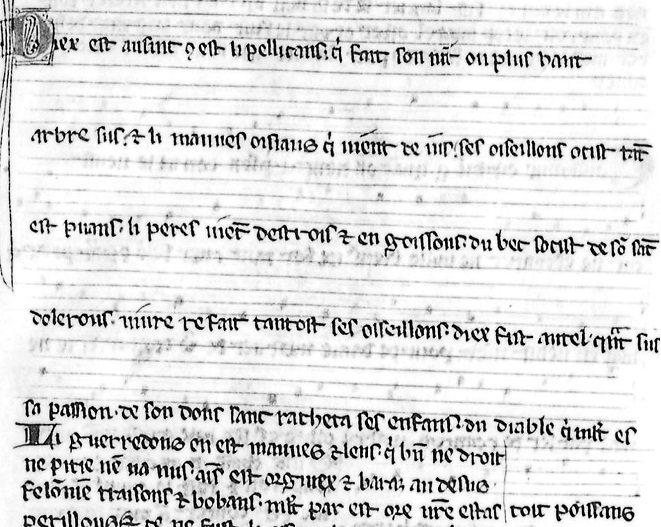 Diex est ausint ꝯ est li pellicans. q̇ fait son nit ou plus haut
arbre sus. ⁊ li mauues oisiaus q̇ uient de ius. ses oiseillons ocist tāt
est puans. li peres uiēt destrois ⁊ en goissous. du bec socist de sō sāc
dolerous. uiure refait tantost ses oiseillons. diex fist autel. qn̄t fu
sa passion. de son douz sanc racheta ses enfans. du diable q̇ est
Li guerredons en est mauues ⁊ lens. q̇ bn̄ ne droit
ne pitie nē na nus. ais est orguiex ⁊ barat au desus
felōnie traisons ⁊ bobans. mlt̄ par est ore ur̄e estas
perillous ⁊ se ne fust